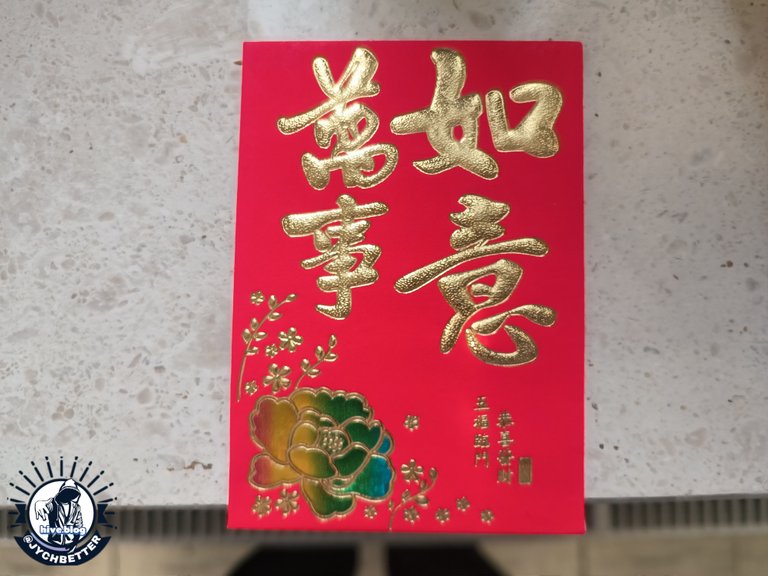 萬事
如意
恭喜發財
五福臨門
hive.blog
@JYCHBETTER